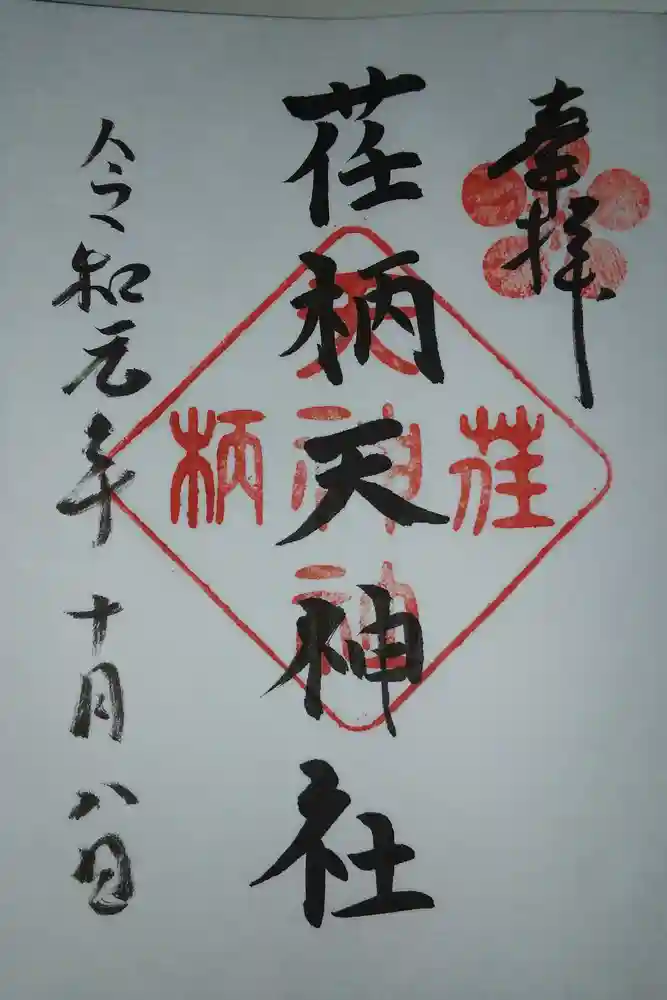 奉拝
荏柄天神社
荏
天神社
柄
令和元年十月八日